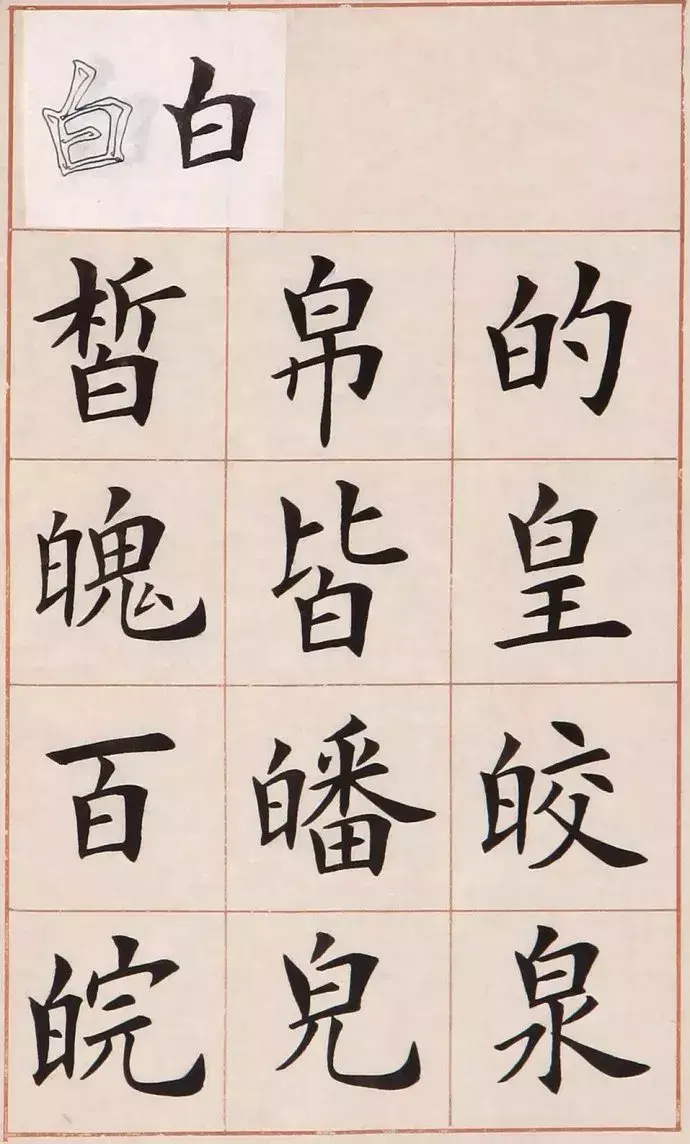 白白
的皇皎泉
帛皆皤皃
皙魄百皖